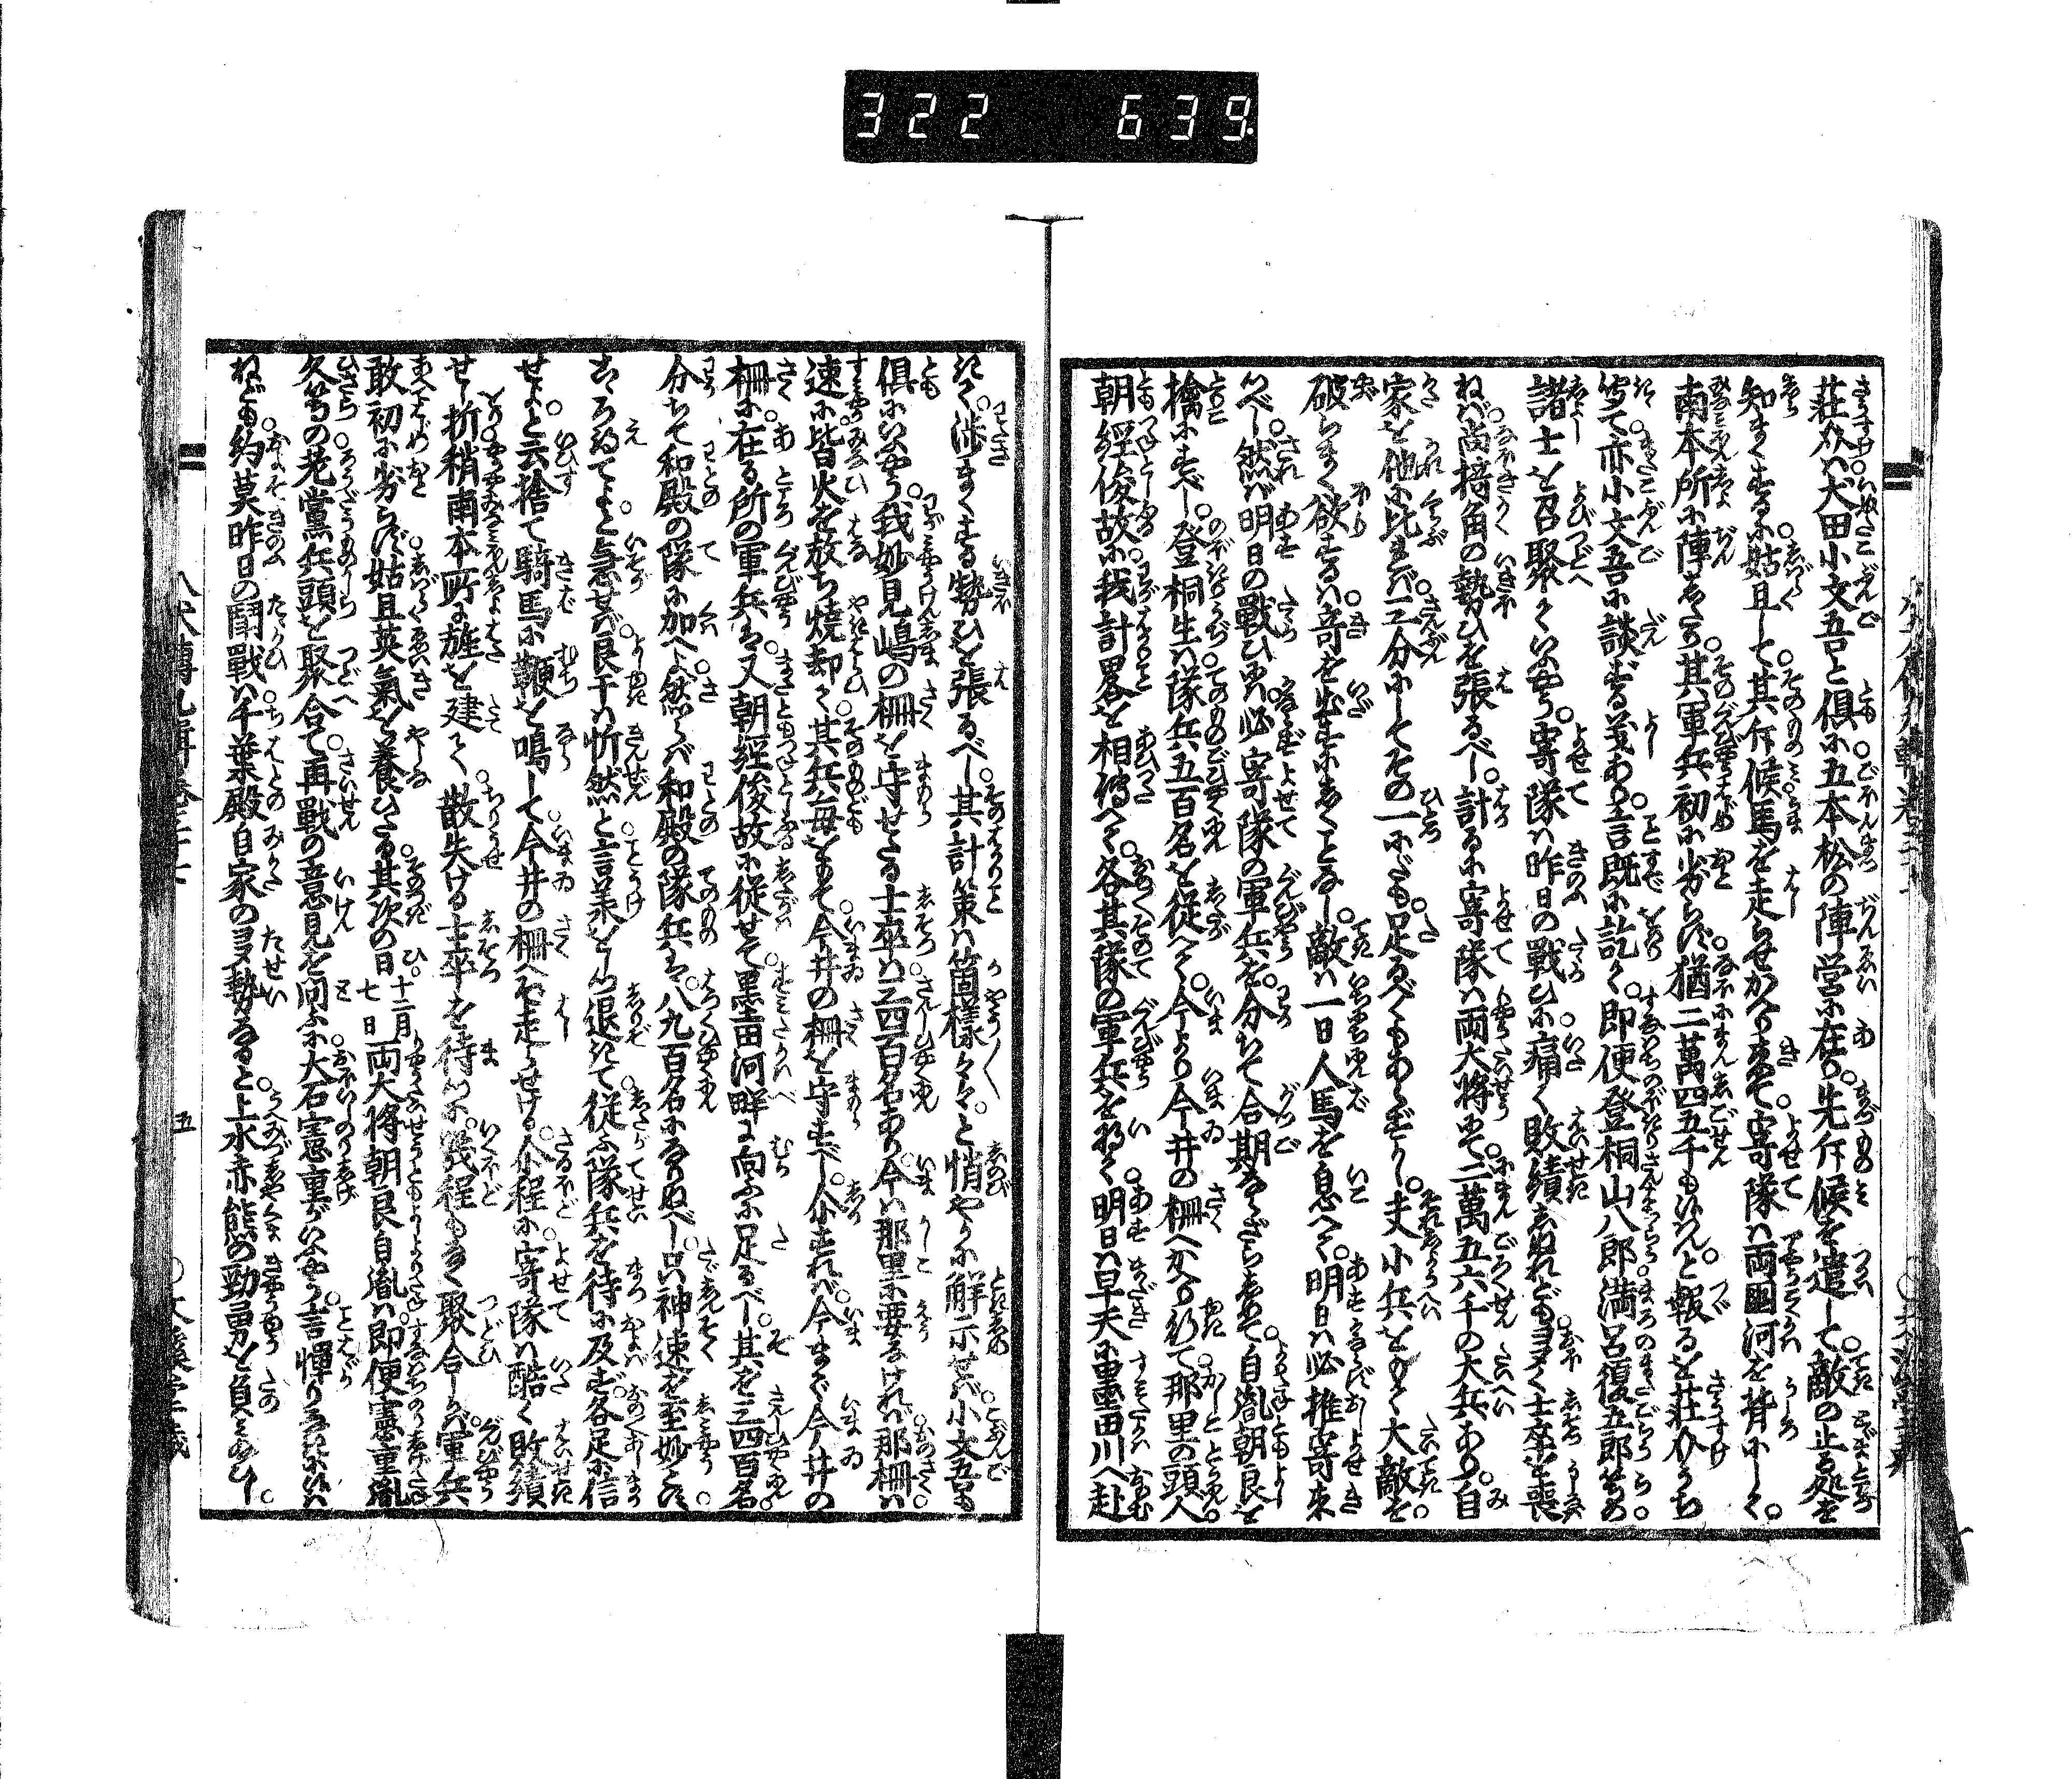 322 639
荘介ハ犬田小文吾と倶に五本松の陣営に在り先斥候を遣して敵の止る処を
知まくするに姑且して其斥候馬を走らせかへり来て寄隊ハ両国河を背にして
南本所に陣したり其軍兵初に劣らず猶二萬四五千もあらんと報るを荘介うち
听て亦小文吾に談ずる義あり言既に訖て即便登桐山八郎満呂復五郎等の
諸士を召聚ていふやう寄隊ハ昨日の戦ひに痛く敗績しぬれども多く士卒を喪
ねば尚掎角の勢ひを張るべし計るに寄隊ハ両大将にて二萬五六千の大兵あり自
家を他に比れバ三分にしてその一にだも足るべくもあらずかし夫小兵をもて大敵を
破らまく欲するハ奇を出すにしくことなし敵ハ一日人馬を息へて明日ハ必推寄来
つべし然ば明日の戦ひにハ必寄隊の軍兵を分ちて合期ならざらしめて自胤朝良を
擒にすべし登桐生ハ隊兵五百名を従へて今より今井の柵へかへり行て那里の頭人
朝経俊故に我計畧を相傳へて各其隊の軍兵をねて明日ハ早天に墨田川へ赴
きて渉まくする勢ひを張るべし其計策ハ箇様々々と悄やかに解示せバ小文吾も
倶にいふやう我妙見嶋の柵を守せたる士卒ハ三四百名あり今ハ那里に要なければ那柵ハ
速に皆火を放ち燒却て其兵毎をもて今井の柵を守すべし介すれバ今まで今井の
柵に在る所の軍兵を又朝経俊故に従せて墨田河畔に向ふに足るべし其を三四百名
分ちて和殿の隊に加へよ然らバ和殿の隊兵を八九百名になりぬべし只神速を至妙とす
こころ得てよと急せば良于ハ忻然と言承をしつ退きて従ふ隊兵を待に及ばず各足に信
せよと云捨て騎馬に鞭を鳴して今井の柵へぞ走らせける介程に寄隊ハ酷く敗績
せし折稍南本所に旌を建て散失ける士卒を待つに幾程もなく聚合しかバ軍兵
敢初に劣らず姑且英氣を養ひたる其次の日十二月七日両大将朝良自胤ハ即便憲重胤
久等の老黨兵頭を聚合て再戦の意見を問ふに大石憲重がいふやう言憚りあるに似
ねども約莫昨日の鬪戰ハ千葉殿自家の多勢なると上水赤熊の勁勇を負みあひし
八犬傳九輯巻三十七
五